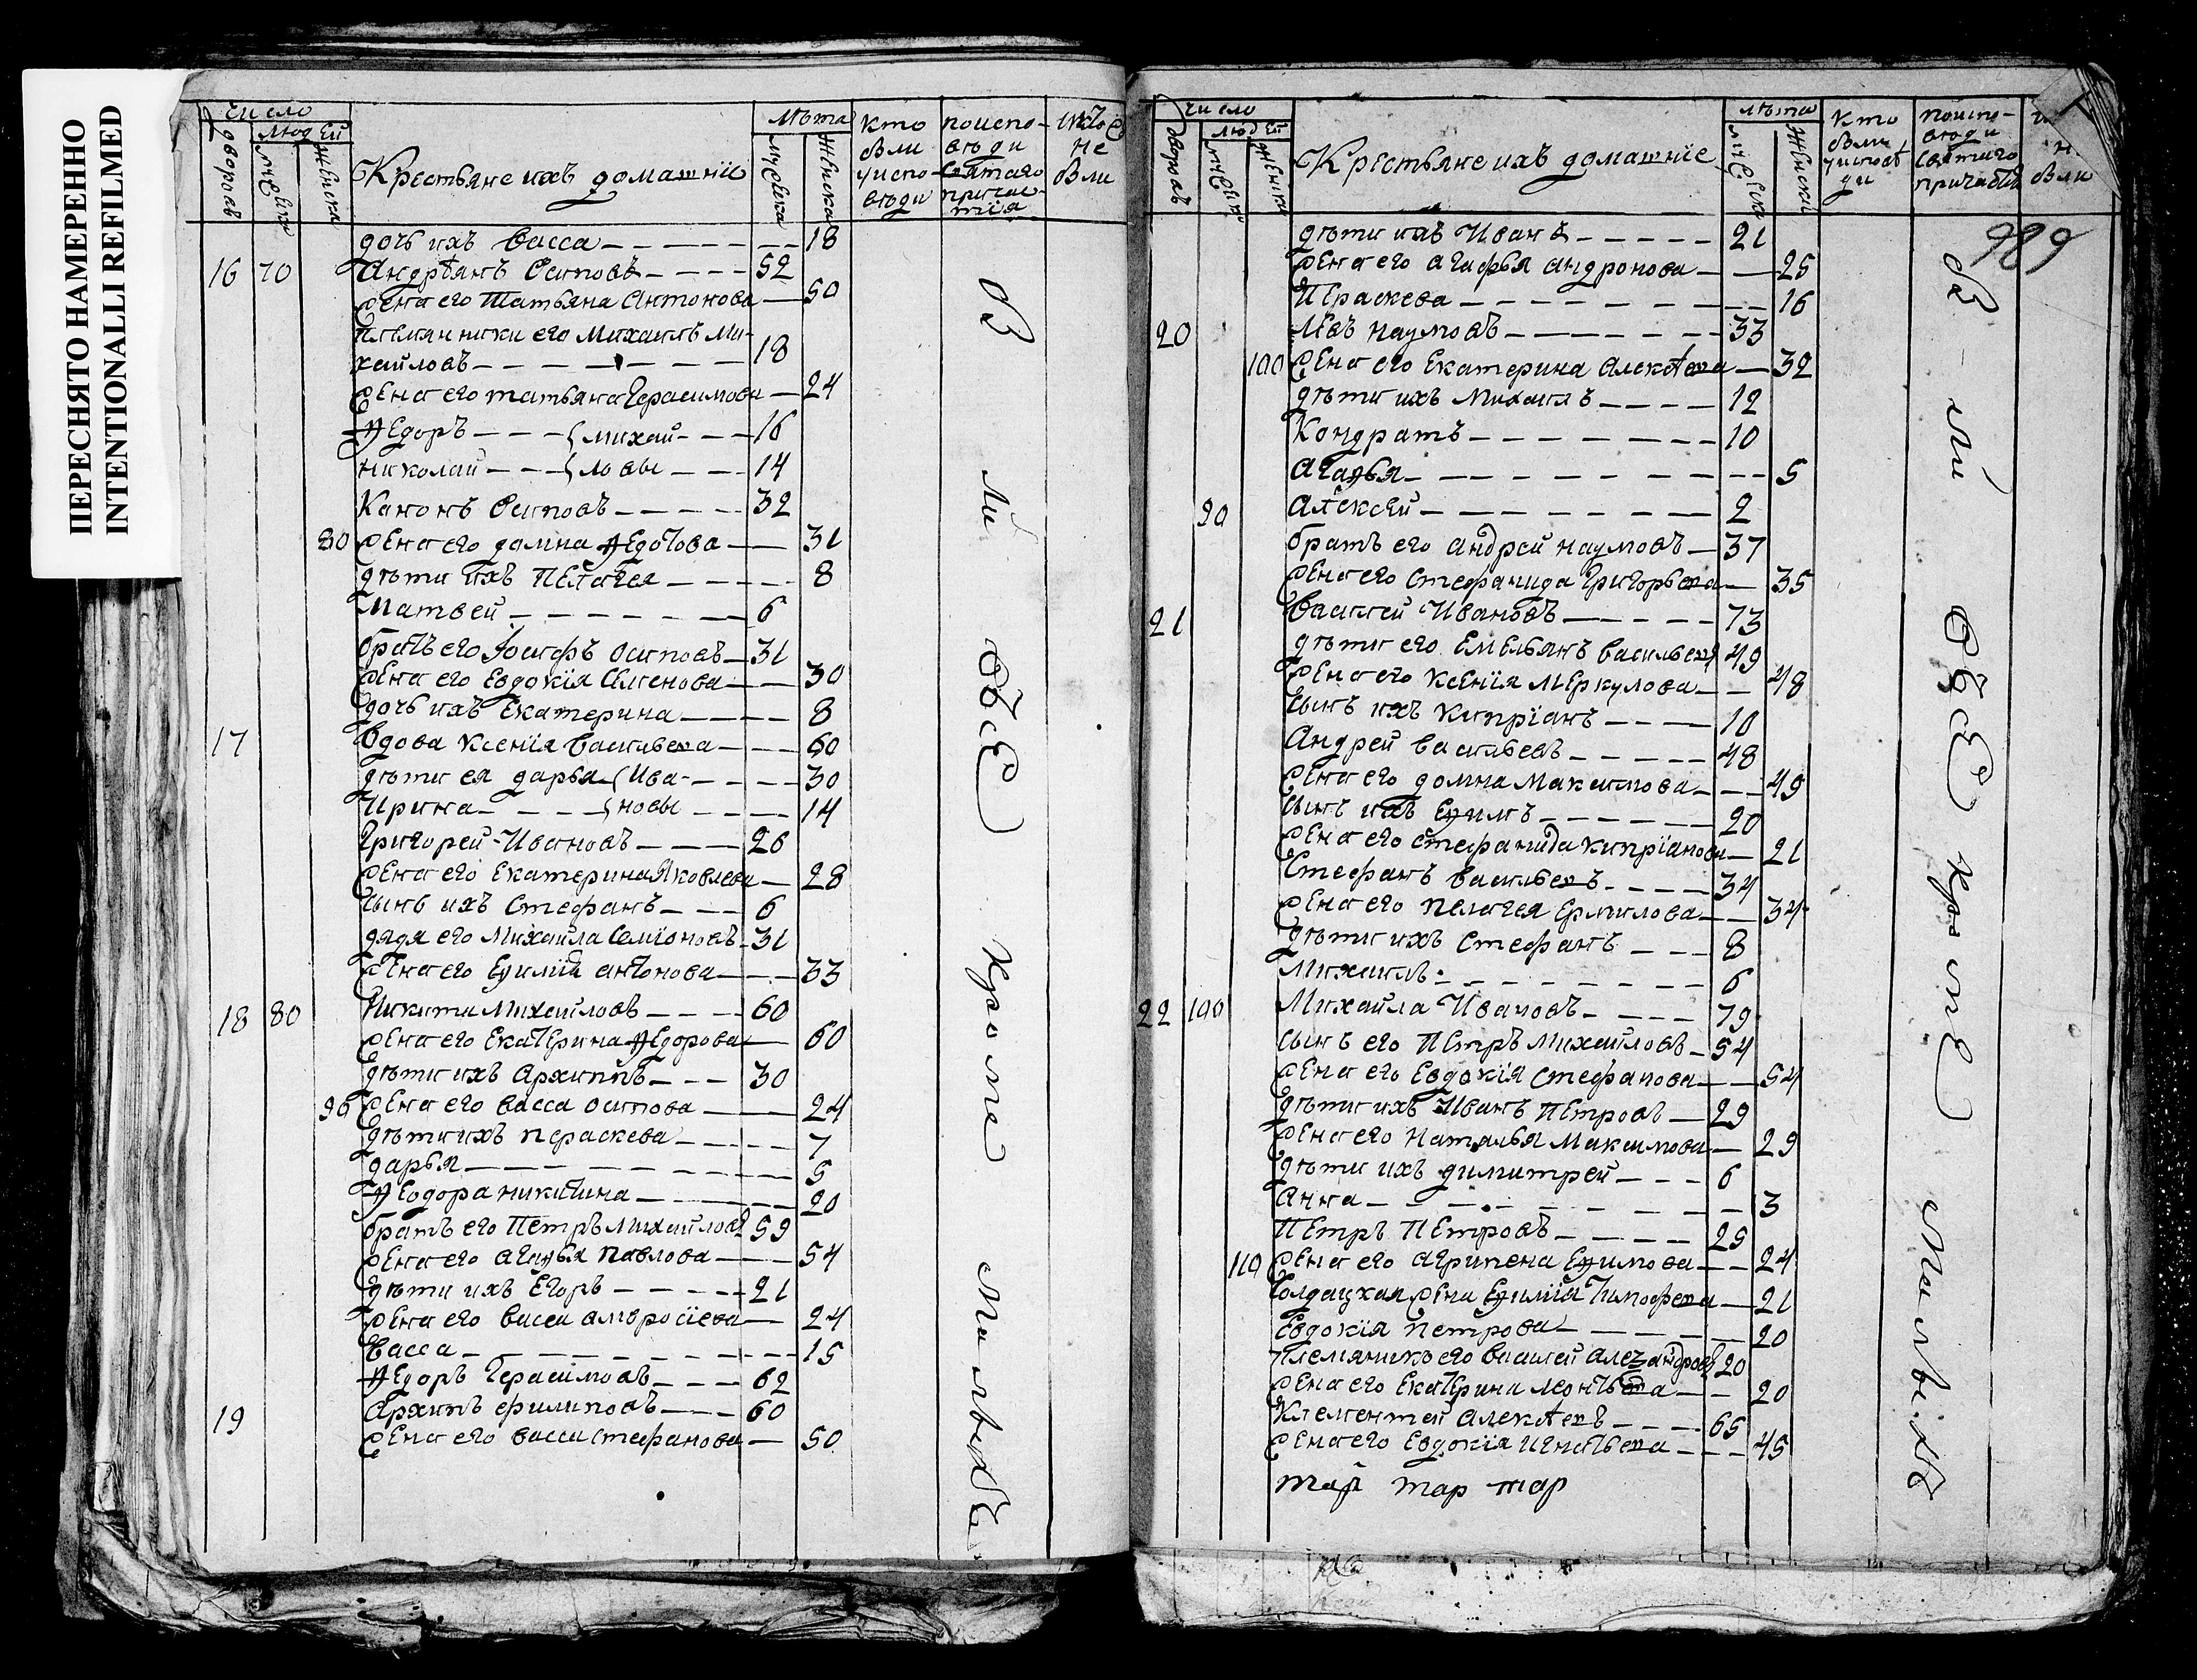 ПЕРЕСНЯТО НАМЕРЕННО
INTENTIONALLI REFILMED
число
дворовъ
людей
мужеска
женска
Крестьяне ихъ домашнїе
лѣта
мужеска
женска
кто
были
у испо-
вѣди
по испо-
вѣди
святаго
причас-
тїя
не
были
дочь ихъ Васса 18
16 70 Андрѣянъ Осиповъ 52
жена его Татьяна Антонова 50
племянники его Михаилъ Ми-
хайловъ 18
жена его татьяна Герасимова 24
Ѳедоръ { михай- 16
Николай { ловы 14
Канонъ Осиповъ 32
80 жена его домна Ѳедотова 31
дѣти ихъ Пелагея 8
Матвей 6
братъ его Іосифъ Осиповъ 31
жена его Евдокїя Семенова 30
дочь ихъ Екатерина 8
17 Вдова Ксенїя Васильева 60
дѣти ея дарья { Ива- 30
Ирина { новы 14
Григорей Ивановъ 26
жена его Екатерина Яковлева 28
сынъ ихъ Стефанъ 6
дядя его Михаила Семїоновъ 31
жена его Еѵимїа антонова 33
18 80 Никита Михаиловъ 60
жена его Екатерина Ѳедорова 60
дѣти ихъ Архиппъ 30
90 жена его Васса Осипова 24
дѣти ихъ параскева 7
дарья 5
Ѳеодора никитина 20
братъ его Петръ михаиловъ 59
жена его Агаѳья павлова 54
дѣти ихъ Егоръ 21
жена его Васса амвросїева 24
Васса 15
Ѳедоръ Герасимовъ 62
19 Архипъ филиповъ 60
жена его Васса Стефанова 50
были
всѣ
кромѣ
малыхъ
число
дворовъ
людей
мужеск
женска
Крестьяне ихъ домашнїе
лѣта
мужеска
женска
кто
были
у исповѣ
ди
по испо-
вѣди
святаго
причастїя
были
989
дѣти ихъ Иванъ 21
жена его агафья андронова 25
Параскева 16
20 Левъ Наумовъ 33
100 жена его Екатерина Алекѣева 32
дѣти ихъ Михаилъ 12
Кондратъ 10
Агаѳья 5
90 Алексей 2
братъ его андрей наумовъ 37
жена его Стефанида Григорьева 35
21 Василей Ивановъ 73
дѣти его Емельянъ Васильевъ 49
жена его Ксенїя Меркулова 48
сынъ ихъ Кипрїанъ 10
Андрей Васильевъ 48
жена его домна Максимова 49
сынъ ихъ Еѵимъ 20
жена его Стефанида Кипрїанова 21
Стефанъ Васильевъ 34
жена его Пелагея Ермилова 34
дѣти ихъ Стефанъ 8
Михаилъ 6
22 100 Михаила Ивановъ 79
сынъ его Петръ Михаиловъ 54
жена его Евдокїя Стефанова 54
дѣти ихъ Иванъ Петровъ 29
жена его Наталья Максимова 29
дѣти ихъ димитрей 6
Анна 3
Петръ Петровъ 25
110 жена его агрипена Еѵимова 24
Солдацкая жена Еѵимїя Тимофеева 21
Евдокїя Петрова 20
племяникъ его Василей Алеѯандровъ 20
жена его Екатерина леонтьева 20
Клементей Алекѣевъ 65
жена его Евдокїя Игнатьева 45
тар тар
были
всѣ
кромѣ
малыхъ